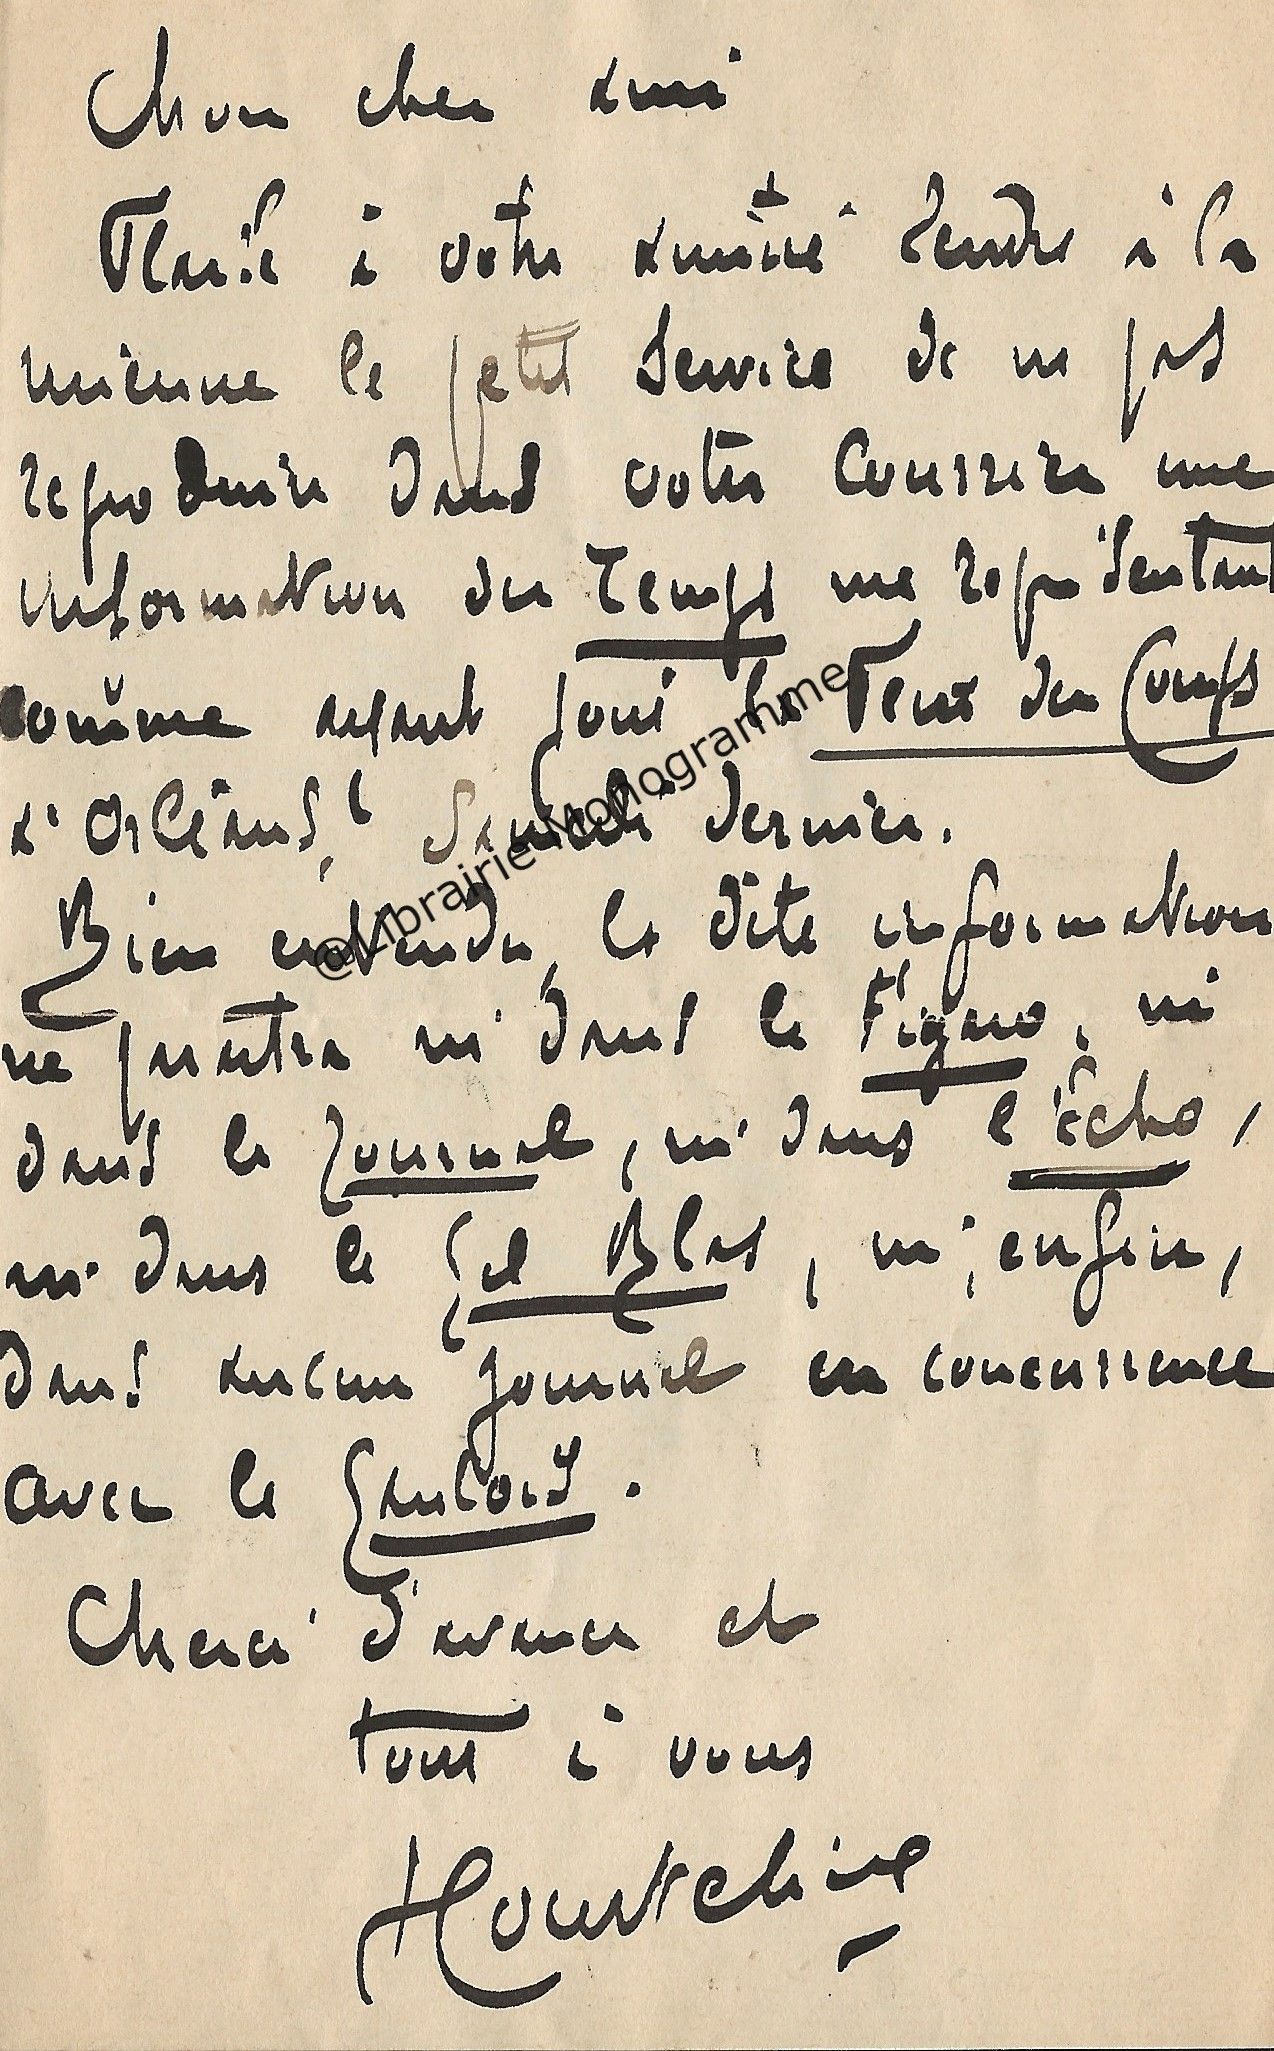 Mon cher ami
Plaise à votre amitié rendre à la
mienne le petit service de ne pas
reproduire dans votre Courrier une
information du Temps me représentant
comme ayant joui le Veux du Comps
d'Orléans, samedi dernier.
Bien entendu, la dite information
ne paraitra ni dans le Figaro, ni
dans le Journal, ni dans l'Écho,
ni dans le Gil Blas, ni, enfin,
dans aucun journal en concurrence
avec le Gaulois.
Merci d'avance et
tout à vous
@Librairie Monogramme